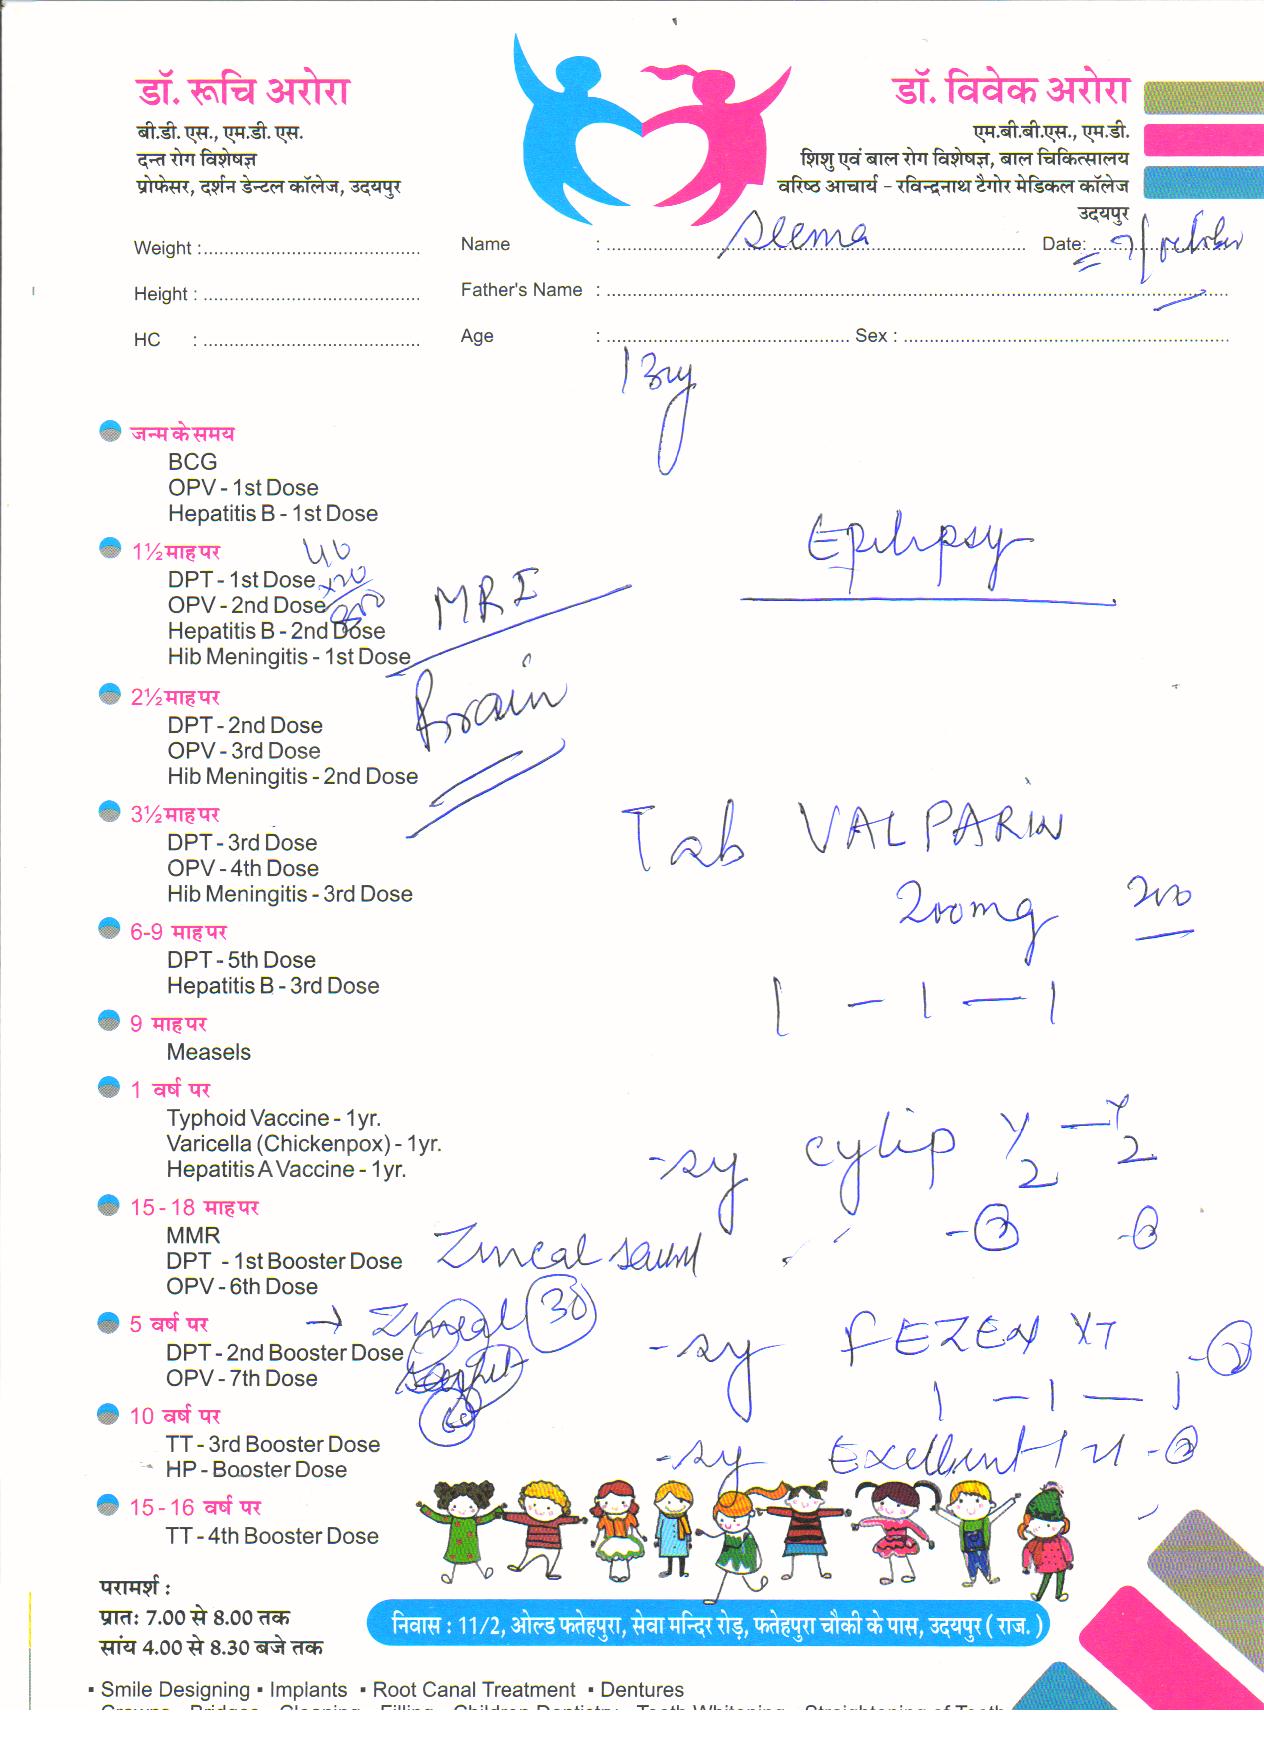 डॉ. रूचि अरोरा
बी.डी. एस., एम.डी. एस.
दन्त रोग विशेषज्ञ
प्रोफेसर, दर्शन डेन्टल कॉलेज, उदयपुर
डॉ. विवेक अरोरा
एम.बी.बी.एस., एम.डी.
शिशु एवं बाल रोग विशेषज्ञ, बाल चिकित्सालय
वरिष्ठ आचार्य - रविन्द्रनाथ टैगोर मेडिकल कॉलेज
उदयपुर
Weight : Name : Seema Date: 7/October
Height : Father's Name :
HC : Age : Sex :
13y
जन्म के समय
BCG
OPV - 1st Dose
Hepatitis B - 1st Dose
Epilipsy
1½ माह पर 40
DPT - 1st Dose x20
OPV - 2nd Dose 800
Hepatitis B - 2nd Dose
Hib Meningitis - 1st Dose
MRI
Brain
2½ माह पर
DPT - 2nd Dose
OPV - 3rd Dose
Hib Meningitis - 2nd Dose
3½ माह पर
DPT - 3rd Dose
OPV - 4th Dose
Hib Meningitis - 3rd Dose
Tab VALPARIN
200mg 200
1 - 1 - 1
6-9 माह पर
DPT - 5th Dose
Hepatitis B - 3rd Dose
9 माह पर
Measels
1 वर्ष पर
Typhoid Vaccine - 1yr.
Varicella (Chickenpox) - 1yr.
Hepatitis A Vaccine - 1yr.
- sy cylip ½ - ½
15 - 18 माह पर
MMR
DPT - 1st Booster Dose
OPV - 6th Dose
Zincal
5 वर्ष पर → Zincal 30
DPT - 2nd Booster Dose
OPV - 7th Dose
- sy FEZEN XT
1 - 1 - 1
10 वर्ष पर
TT - 3rd Booster Dose
HP - Booster Dose
- sy
15 - 16 वर्ष पर
TT - 4th Booster Dose
परामर्श :
प्रातः 7.00 से 8.00 तक
सांय 4.00 से 8.30 बजे तक
निवास : 11/2, ओल्ड फतेहपुरा, सेवा मन्दिर रोड़, फतेहपुरा चौकी के पास, उदयपुर ( राज. )
▪ Smile Designing ▪ Implants ▪ Root Canal Treatment ▪ Dentures